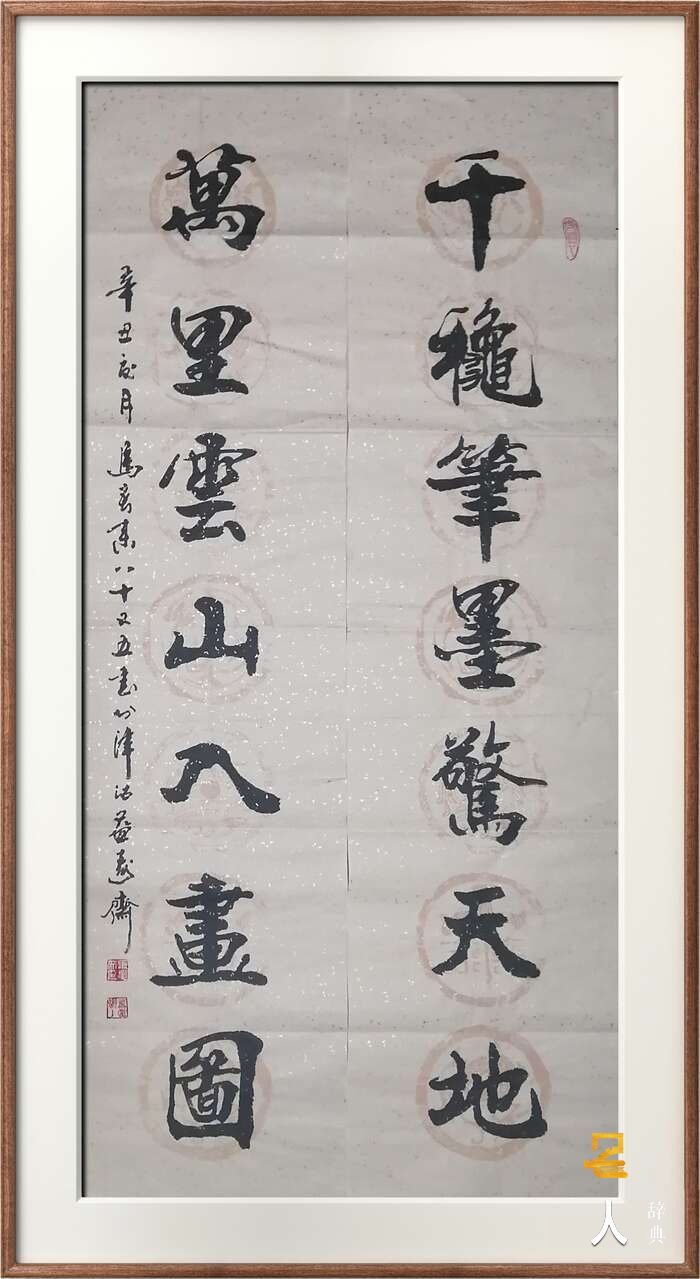 千穐筆墨驚天地
萬里雲山入畫圖
辛丑 月 八十又五書於津沽益 齋
名人
辞典